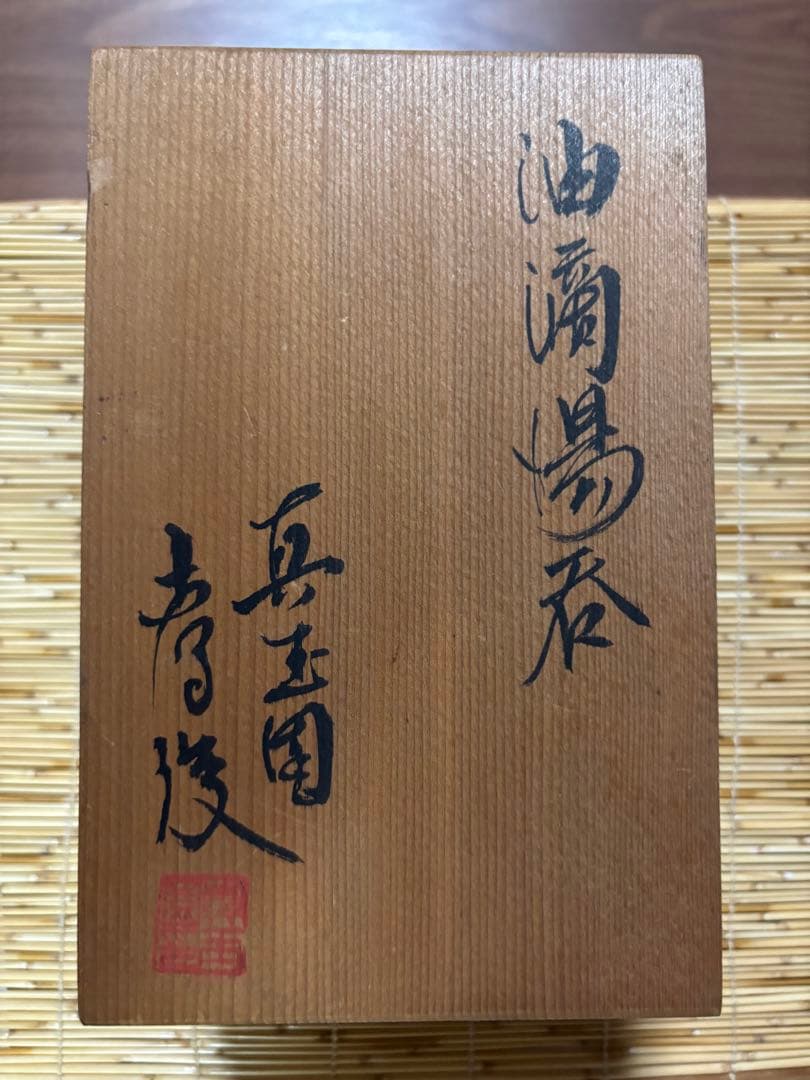 油滴湯呑
真玉園
孝俊